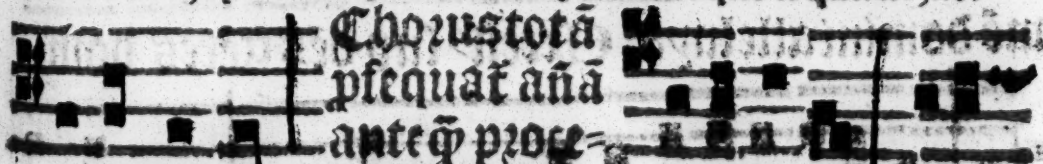 Chorus totā
ꝓsequat᷑ añā
anteq̄ꝫ proce⸗